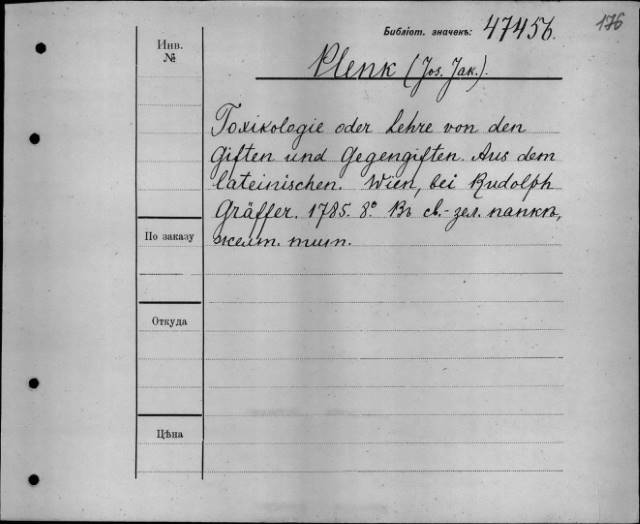 Библіот. значекъ: 47456. 176
Инв. №
Plenk (Jos. Jak.).
Toxikologie oder Lehre von den
Giften und Gegengiften. Aus dem
lateinischen. Wien, bei Rudolph
Gräffer. 1785. 8° Въ св.-зел. папкѣ,
желт. тит.
По заказу
Откуда
Цѣна